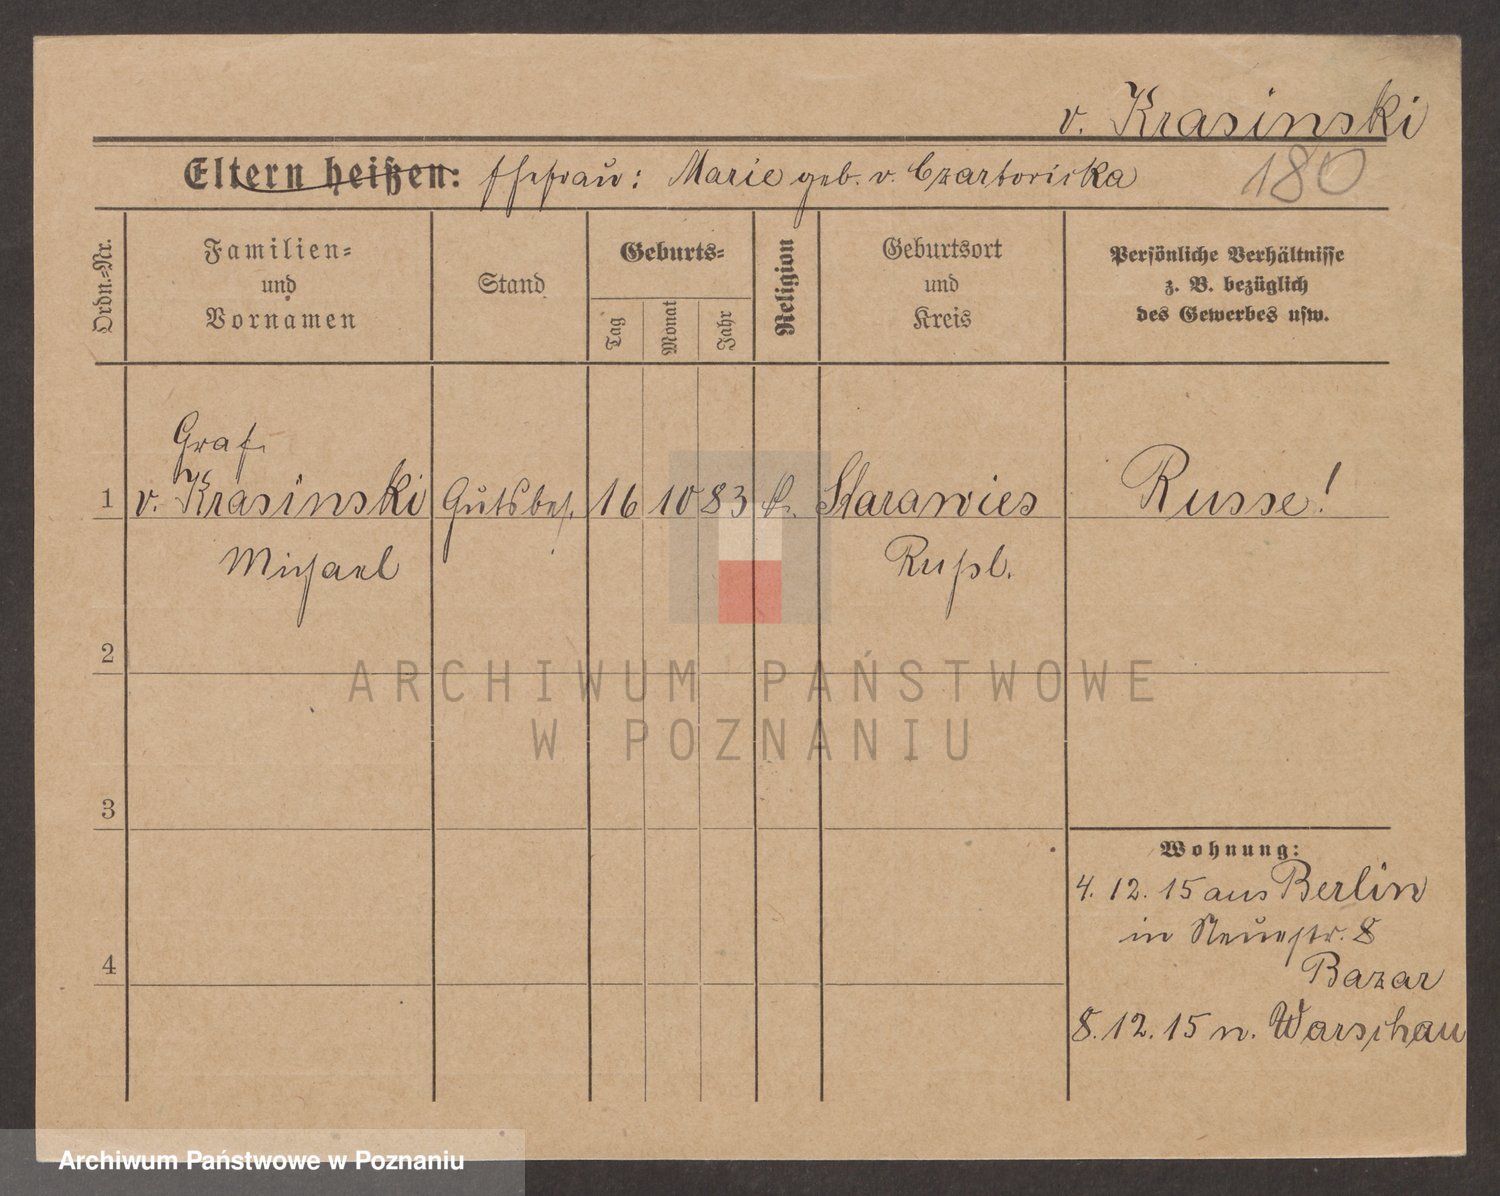 v. Krasinski
Eltern heißen: Ehefrau: Marie geb. v. Czartoriska
180
Ordn.-Nr.
Familien-
und
Vornamen
Stand
Geburts-
Tag
Monat
Jahr
Religion
Geburtsort
und
Kreis
Persönliche Verhältnisse
z. B. bezüglich
des Gewerbes usw.
Graf
1 v. Krasinski Gutsbes. 16 10 83 k. Starawies Russe!
Michael Rußl.
2
ARCHIWUM PAŃSTWOWE
W POZNANIU
3
Wohnung:
4. 12. 15 aus Berlin
in Neuestr. 8
4
Bazar
8. 12. 15 n. Warschau
Archiwum Państwowe w Poznaniu